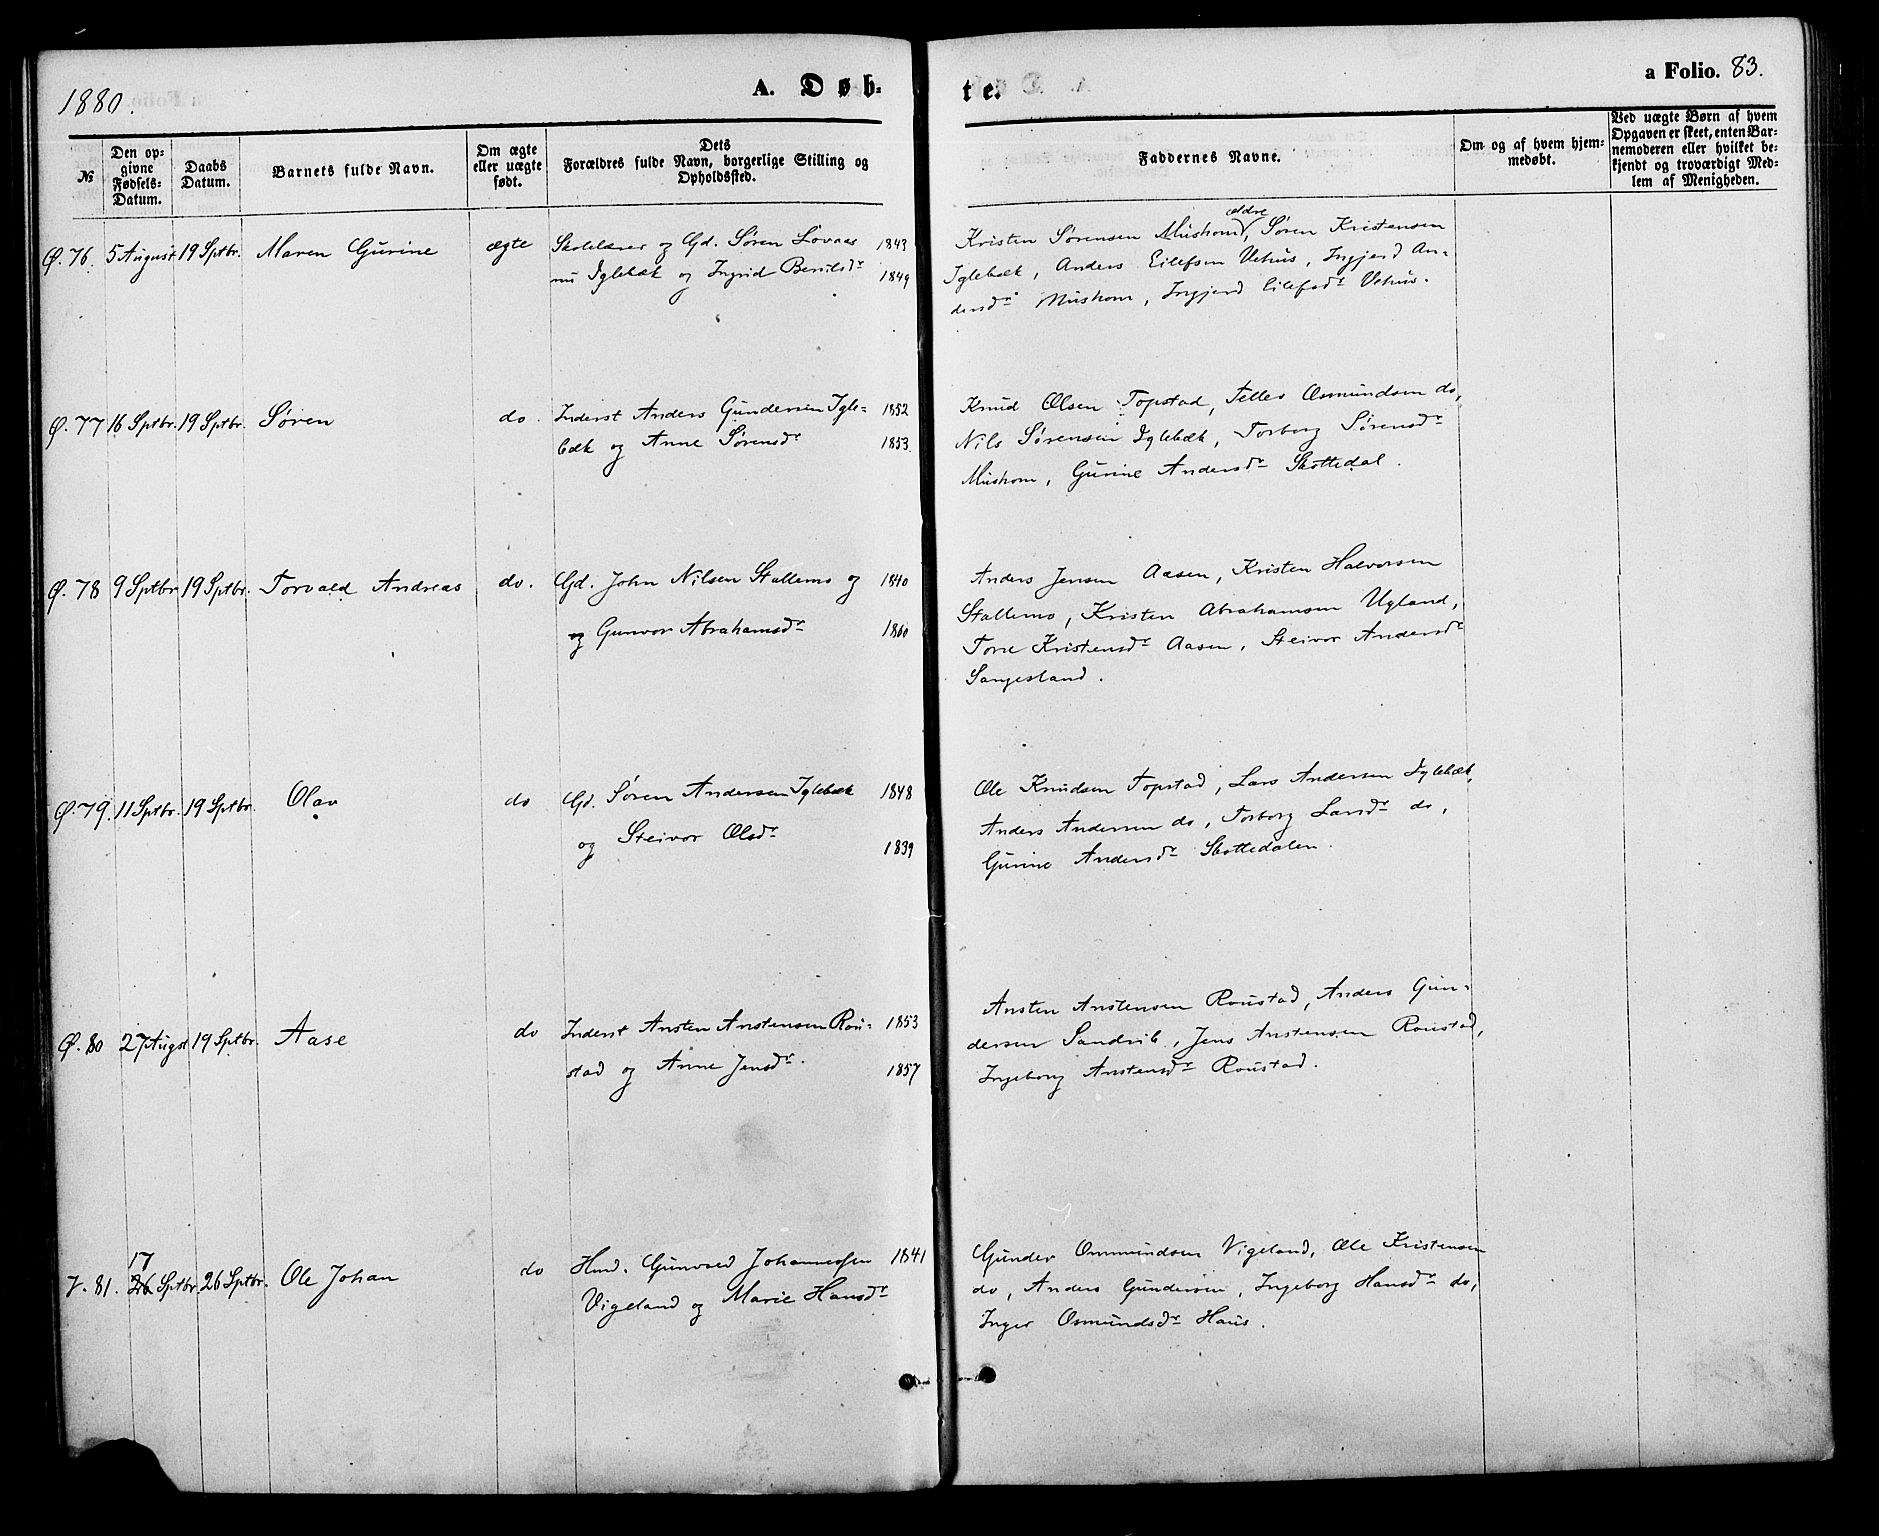 1880.
A. Døb-
te.
a Folio. 83.
№
Den op-
givne
Fødsels-
Datum.
Daabs
Datum.
Barnets fulde Navn.
Om ægte
eller uægte
født.
Dets
Forældres fulde Navn, borgerlige Stilling og
Opholdssted.
Faddernes Navne.
Om og af hvem hjem-
medøbt.
Ved uægte Børn af hvem
Opgaven er skeet, enten Bar-
nemoderen eller hvilket be-
kjendt og troværdigt Med-
lem af Menigheden.
Ø. 76. 5 August 19 Sptbr. Maren Gurine ægte Skolelærer og Gd. Søren Lovaas 1843
nu Iglebæk og Ingrid 1849
ældre
Kristen Sørensen Mushom, Søren Kristensen
Iglebæk, Anders Eilefsen Vehus, Ingjerd An-
dersdr Mushom, Ingjerd Eilefsdr Vehus.
Ø. 77 16 Sptbr. 19 Sptbr. Søren do. Inderst Anders Gundersen Igle- 1852
bæk og Anne Sørensdr 1853.
Knud Olsen Topstad, Tellef Osmundsen do,
Nils Sørensen Iglebæk, Torborg Sørensdr
Mushom, Gurine Andersdr Skottedal.
Ø. 78 9 Sptbr 19 Sptbr. Torvald Andreas do. Gd. John Nilsen Stallemo og 1840
og Gunvor Abrahamsdr 1860
Anders Jensen Aasen, Kristen Halvorsen
Stallemo, Kristen Abrahamsen Ugland,
Tone Kristensdr Aasen, Steivor Andersdr
Sangesland.
Ø. 79. 11 Sptbr. 19 Sptbr. Olav do Gd. Søren Andersen Iglebæk 1848
og Steivor Olsdr 1839
Ole Knudsen Topstad, Lars Andersen Iglebæk,
Anders Andersen do, Torborg Larsdr do,
Gurine Andersdr Skottedalen.
Ø. 80 27 Augst 19 Sptbr. Aase do Inderst Ansten Anstensen Rou- 1853
stad og Anne Jensdr. 1857
Ansten Anstensen Roustad, Anders Gun-
dersen Sandrib, Jens Anstensen Roustad,
Ingeborg Anstensdr Roustad.
17
V. 81. 26 Sptbr 26 Sptbr. Ole Johan do Hmd. Gunvald Johannesen 1841
Vigeland og Marie Hansdr
Gunder Ommundsen Vigeland, Ole Kristensen
do, Anders Gundersen, Ingeborg Hansdr do,
Inger Osmundsdr Haus.